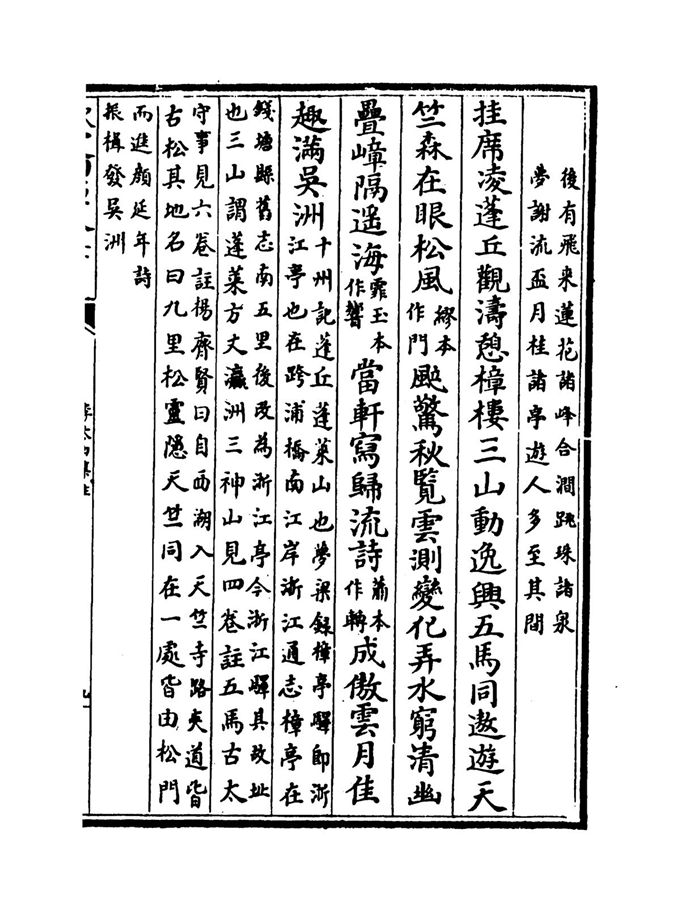 後有飛来蓮花諸峰合澗跳珠諸泉
夢謝流盃月桂諸亭遊人多至其間
挂席凌蓬丘觀濤憩樟樓三山動逸興五馬同遨遊天
竺森在眼松風繆本作門颭驚秋覽雲測變化弄水窮清幽
疊嶂隔遥海霏玉本作響當軒寫歸流詩蕭本作轉成傲雲月佳
趣滿吳洲十州記蓬丘蓬莱山也夢梁録樟亭驛即浙
江亭也在跨浦橋南江岸浙江通志樟亭在
錢塘縣舊志南五里後改為浙江亭今浙江驛其故址
也三山謂蓬莱方丈瀛洲三神山見四卷註五馬古太
守事見六卷註楊齊賢曰自西湖入天竺寺路夾道皆
古松其地名曰九里松靈隱天竺同在一處皆由松門
而進顔延年詩
振楫發吳洲
李太白集注
九